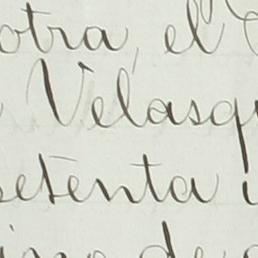 otra, el
Velasq
setenta
de